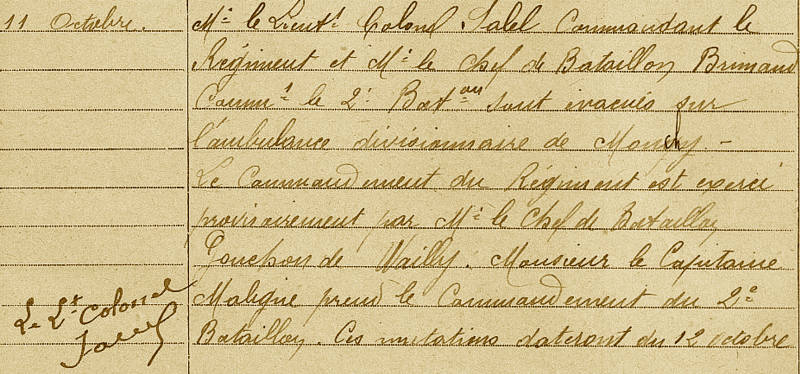 11 Octobre.
Mr le Lieutt Colonel Salel Commandant le
Régiment et Mr le Chef de Bataillon Brimaud
Commt le 2e Bat.on sont évacués sur
l'ambulance divisionnaire de Monchy -
Le Commandement du Régiment est exercé
provisoirement par Mr le Chef de Bataillon
de Wailly. Monsieur le Capitaine
Maligne prend le Commandement du 2e
Bataillon. Ces mutations dateront du 12 Octobre
Le Lt Colonel